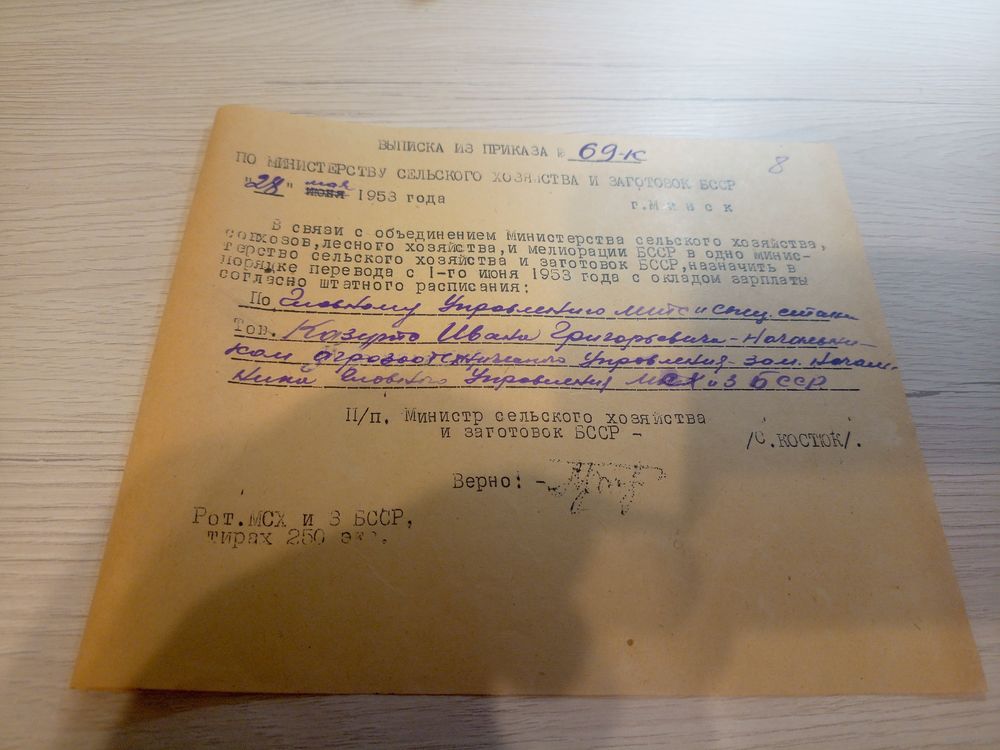 ВЫПИСКА ИЗ ПРИКАЗА № 69-к
8
ПО МИНИСТЕРСТВУ СЕЛЬСКОГО ХОЗЯЙСТВА И ЗАГОТОВОК БССР
"28" мая июня 1953 года
г.Минск
В связи с объединением Министерства сельского хозяйства,
совхозов,лесного хозяйства,и мелиорации БССР в одно минис-
терство сельского хозяйства и заготовок БССР,назначить в
порядке перевода с I-го июня 1953 года с окладом зарплаты
согласно штатного расписания:
По Главному Управлению МТС и спец.
Тов. Ивана Григорьевича - Начальни-
ком Управления - зам. Началь-
ника Главного Управления МСХ и З БССР
П/п. Министр сельского хозяйства
и заготовок БССР -
/С.КОСТЮК/.
Верно: -
Рот.МСХ и З БССР,
тираж 250 экз.